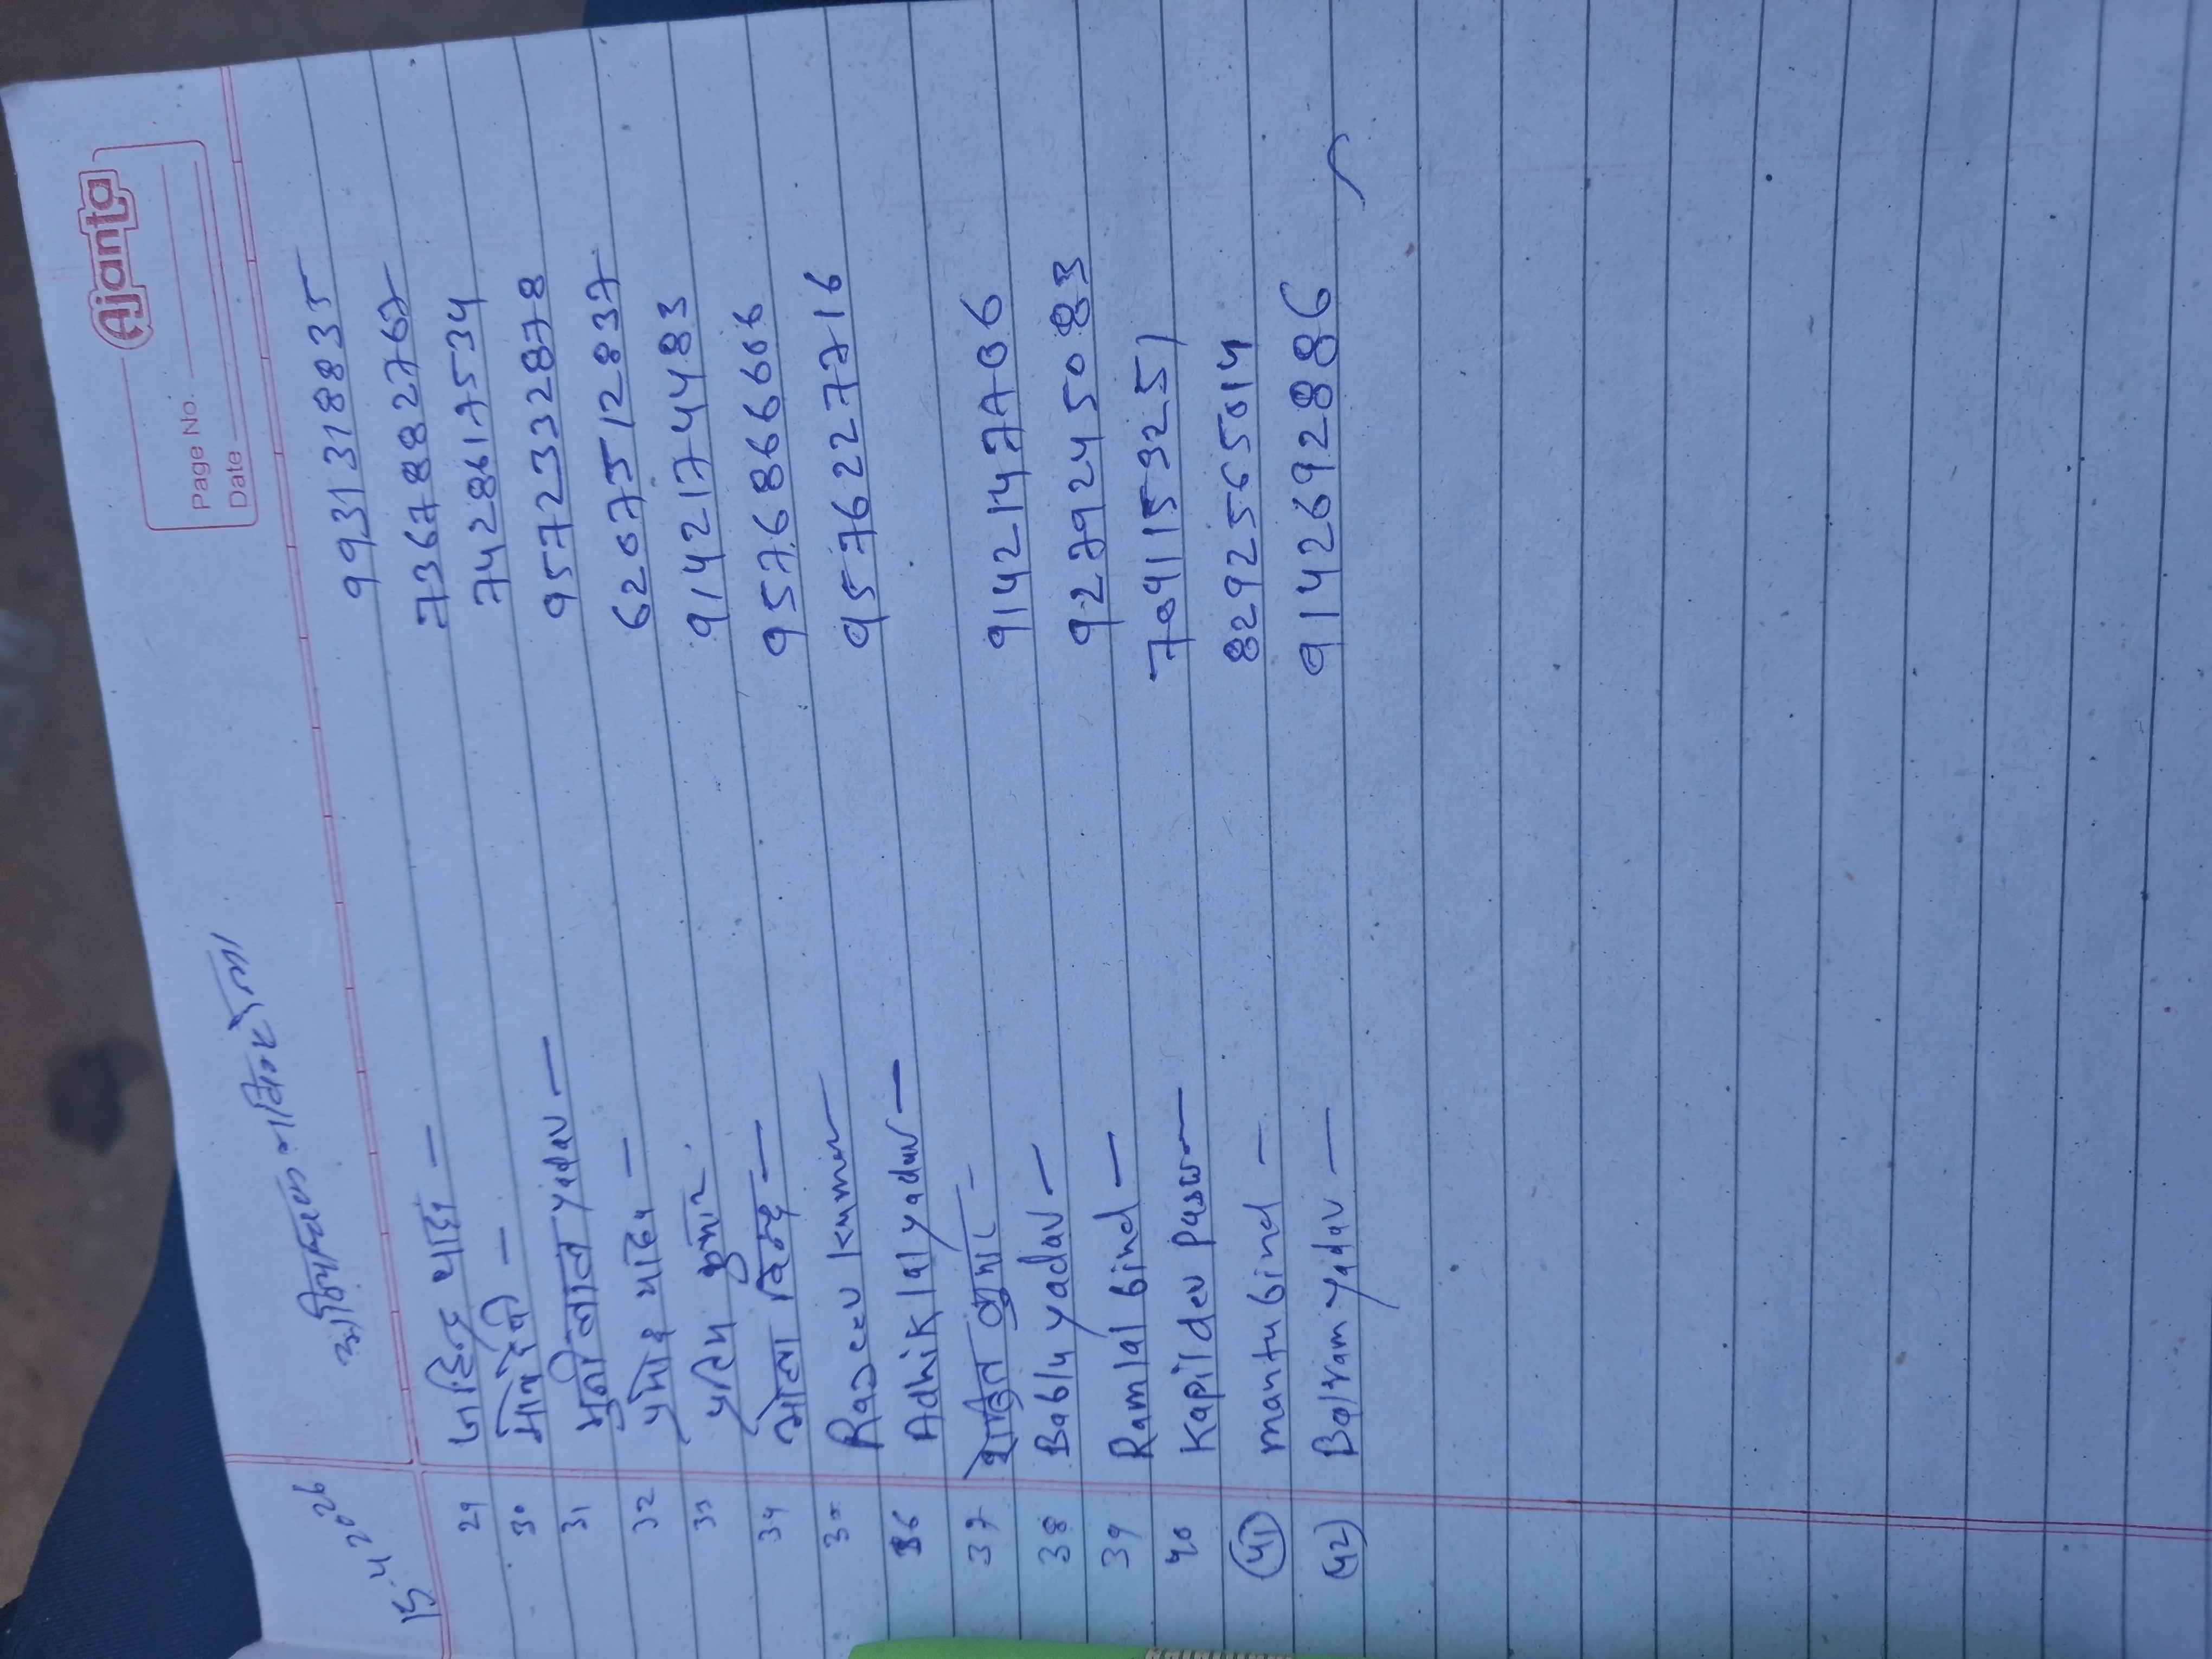 Ajanta
Page No.
Date
15-4 2026
29 जहिन्द्र यादव — 9931318835
30 देवी — 7367888276७
31 मुनीलाल yadav — 7428617534
32 प्रमोद यादव — 9572332878
33 कुमार 6207512837
34 भोला बिन्द — 9142174483
35 Rajeev kumar 9576866606
36 Adhik lal yadav — 9576227716
37 कुमार -
38 Bablu yadav — 9142147706
39 Ramlal bind — 9279245083
40 Kapil dev Paswan 7091153251
41 mantu bind — 8292565014
42 Balram yadav — 9142692886